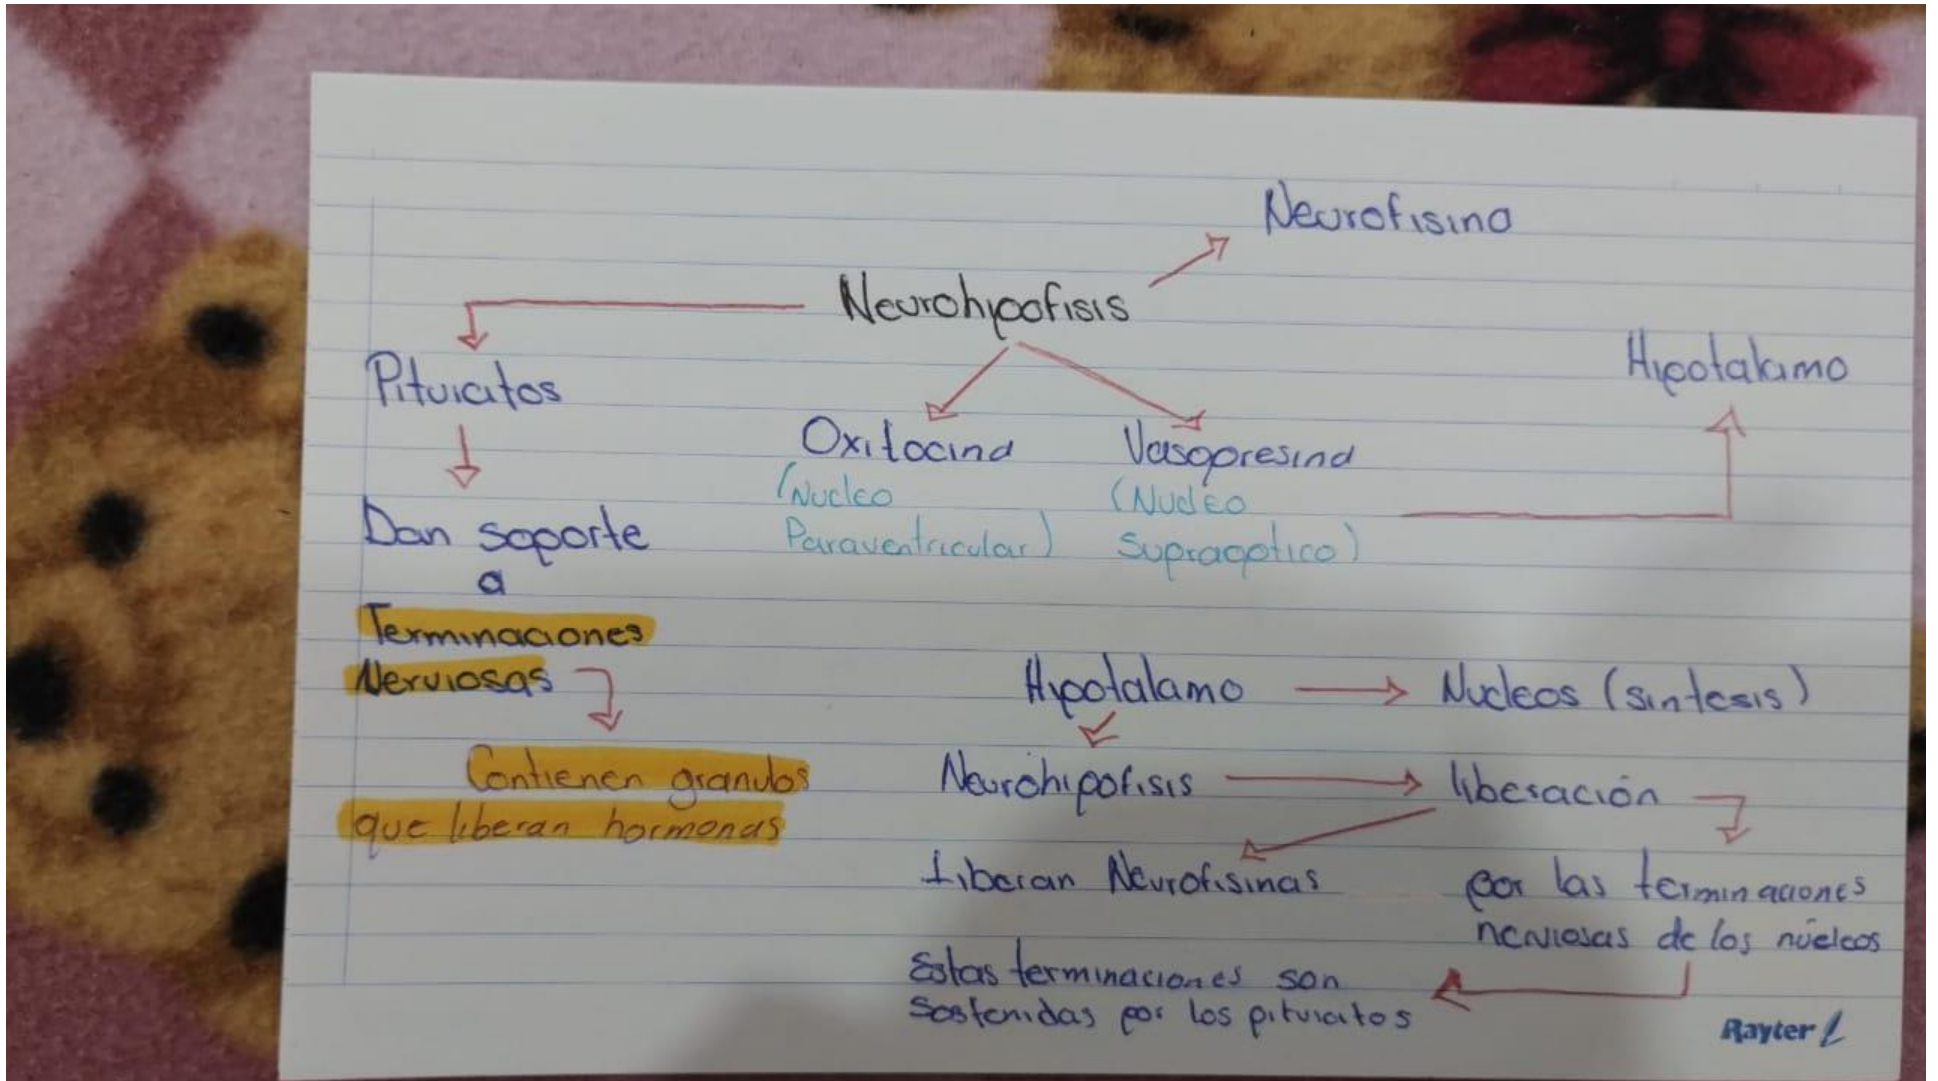 Neurofisina
Neurohipofisis
Hipotalamo
Pituicitos
Oxitocina
Vasopresina
(Nucleo
Paraventricular)
(Nucleo
Supraoptico)
Dan soporte
a
Terminaciones
Nerviosas
Contienen granulos
que liberan hormonas
Hipotalamo
Nucleos (sintesis)
Neurohipofisis
liberación
Liberan Neurofisinas
por las terminaciones
nerviosas de los núcleos
Estas terminaciones son
Sostenidas por los pituicitos
Rayter